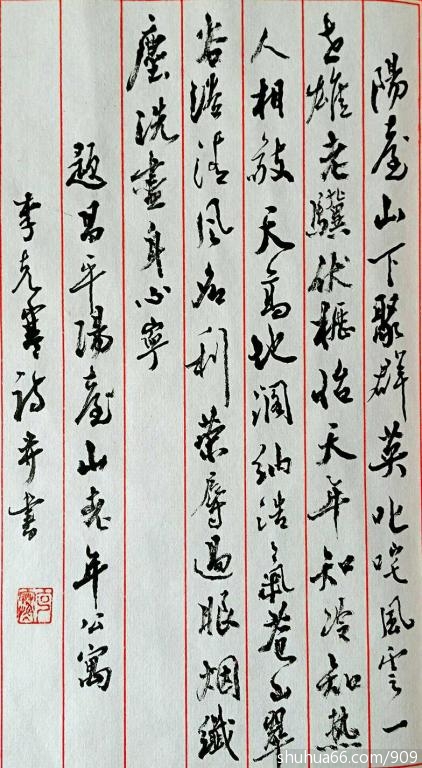 陽臺山下聚群英叱咤風雲一
世雄老驥伏櫪怡天年知冷知熱
人相敬天高地闊納浩氣蒼山翠
谷溢清風名利榮辱過眼烟纖
塵洗盡身心寧
題昌平陽臺山老年公寓
李克詩并書
shuhua66.com/909